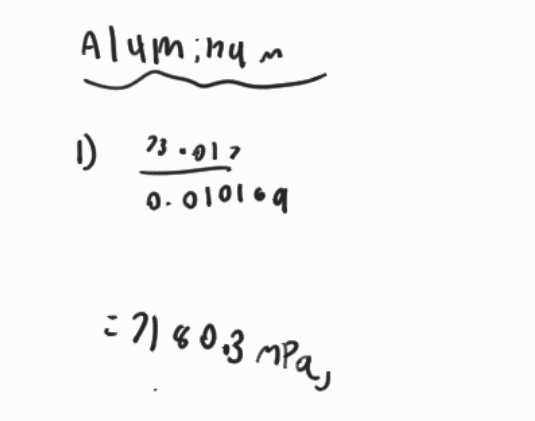 Aluminum
1) 73.017
0.010169
= 7180.3 mPa,